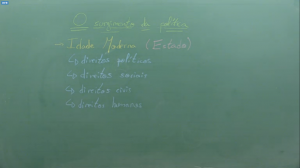 O surgimento da política
- Idade Moderna (Estado)
↳ direitos políticos
↳ direitos sociais
↳ direitos civis
↳ direitos humanos